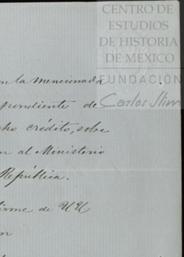 CENTRO DE
ESTUDIOS
DE HISTORIA
DE MEXICO
FUNDACIÓN
Carlos Slim
n la mencionada
pendiente de
ho crédito, sobe
n al Ministerio
República.
irme de UU